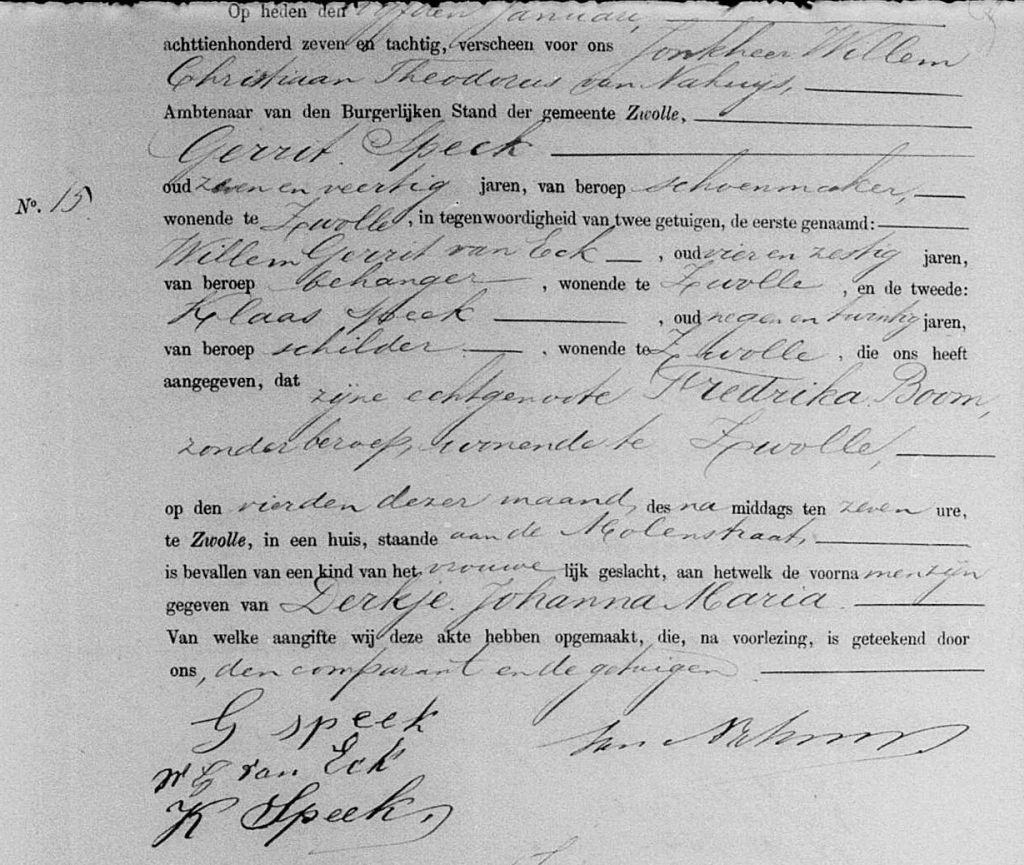 Op heden den vijfden Januari,
achttienhonderd zeven en tachtig, verscheen voor ons Jonkheer Willem
Christiaan Theodorus van Nahuys,
Ambtenaar van den Burgerlijken Stand der gemeente Zwolle,
Gerrit Speek
oud zeven en veertig jaren, van beroep schoenmaker,
No. 15.
wonende te Zwolle, in tegenwoordigheid van twee getuigen, de eerste genaamd:
Willem Gerrit van Eck, oud vier en zestig jaren,
van beroep behanger, wonende te Zwolle, en de tweede:
Klaas Speek, oud negen en twintig jaren,
van beroep schilder, wonende te Zwolle, die ons heeft
aangegeven, dat zijne echtgenoote Fredrika Boom,
zonder beroep, wonende te Zwolle,
op den vierden dezer maand, des na middags ten zeven ure,
te Zwolle, in een huis, staande aan de Molenstraat,
is bevallen van een kind van het vrouwe lijk geslacht, aan hetwelk de voorna men zijn
gegeven van Derkje Johanna Maria
Van welke aangifte wij deze akte hebben opgemaakt, die, na voorlezing, is geteekend door
ons, den comparant en de getuigen
G speek
van Nahuys
W G van Eck
K Speek,